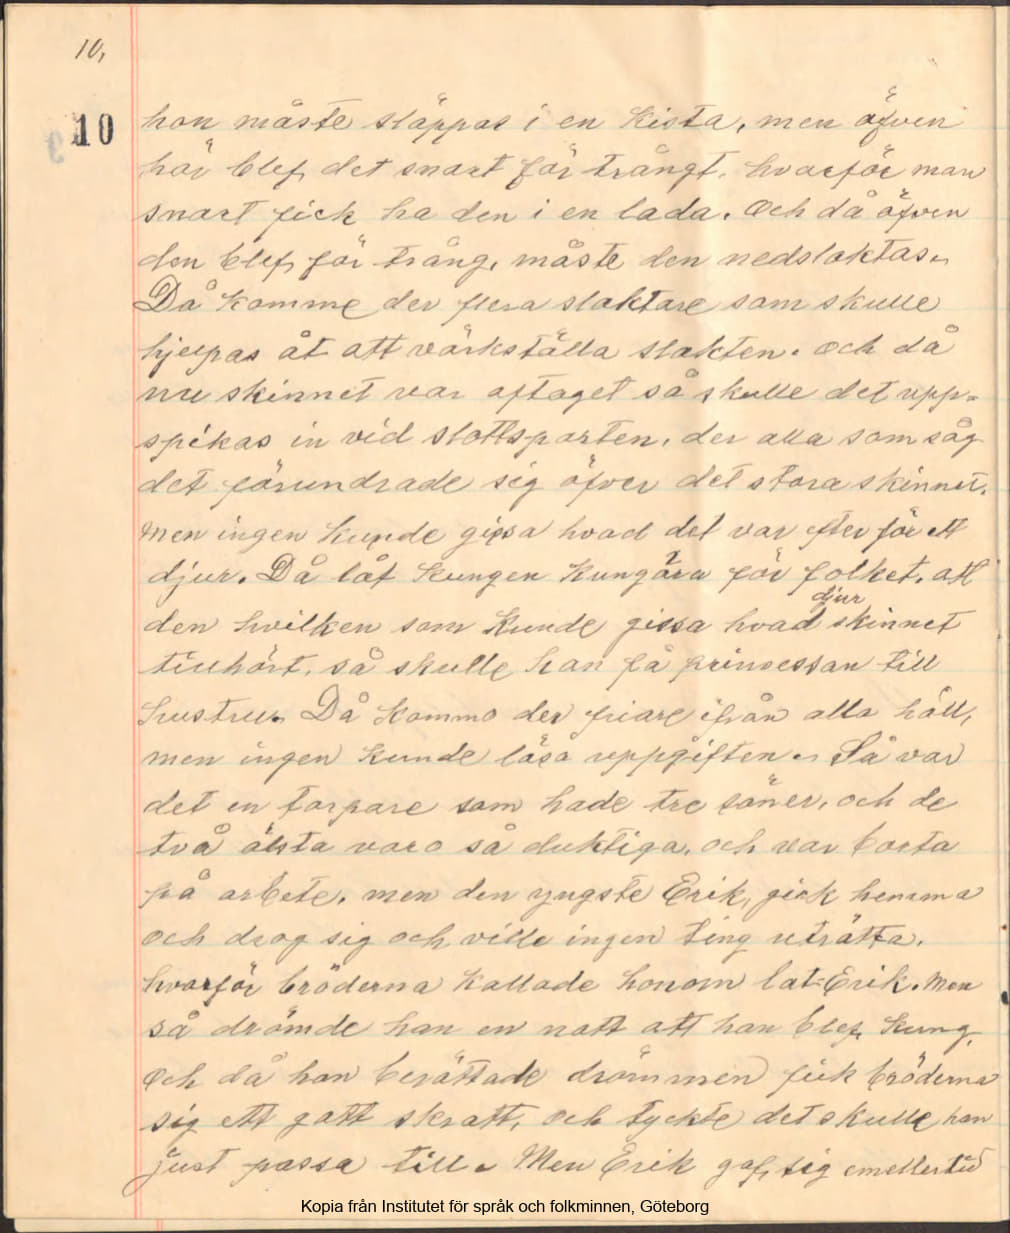 10,
10
hon måste släppas i en Kista, men äfven
här blef det snart för trångt. hvarför man
snart fick ha den i en lada. Och då äfven
den blef för trång, måste den nedslaktas.
Då komme der flera slaktare som skulle
hjelpas åt att värkställa slakten. och då
nu skinnet var aftaget så skulle det upp-
spikas in vid slottsporten, der alla som såg
det förundrade sig öfver det stora skinnet.
Men ingen kunde gissa hvad det var efter för ett
djur. Då lät kungen kungöra för folket. att
den hvilken som kunde gissa hvad djur skinnet
tillhört, så skulle han få prinsessan till
hustru. Då kommo der friare ifrån alla håll,
men ingen kunde lösa uppgiften. Så var
det en torpare som hade tre söner, och de
två älsta varo så duktiga. och var borta
på arbete. men den yngste Erik, gick hemma
och drog sig och ville ingen ting uträtta.
hvarför bröderna kallade honom lat-Erik. Men
så drömde han en natt att han blef kung,
Och då han berättade drömmen fick bröderna
sig ett gott skratt, och tyckte det skulle han
just passa till. Men Erik gaf sig emellertid
Kopia från Institutet för språk och folkminnen, Göteborg